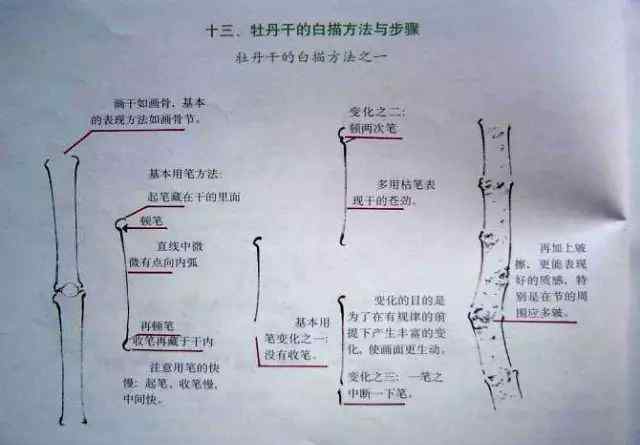 十三、牡丹干的白描方法与步骤
牡丹干的白描方法之一
画干如画骨，基本
的表现方法如画骨节。
基本用笔方法：
起笔藏在干的里面
顿笔
直线中微
微有点向内弧
再顿笔
收笔再藏于干内
注意用笔的快
慢：起笔、收笔慢，
中间快。
基本用
笔变化之一：
没有收笔。
变化之二：
顿两次笔
多用枯笔表
现干的苍劲。
变化的目的是
为了在有规律的前
提下产生丰富的变
化，使画面更生动。
变化之三：一笔之
中断一下笔。
再加上皴
擦，更能表现
好的质感，特
别是在节的周
围应多皴。